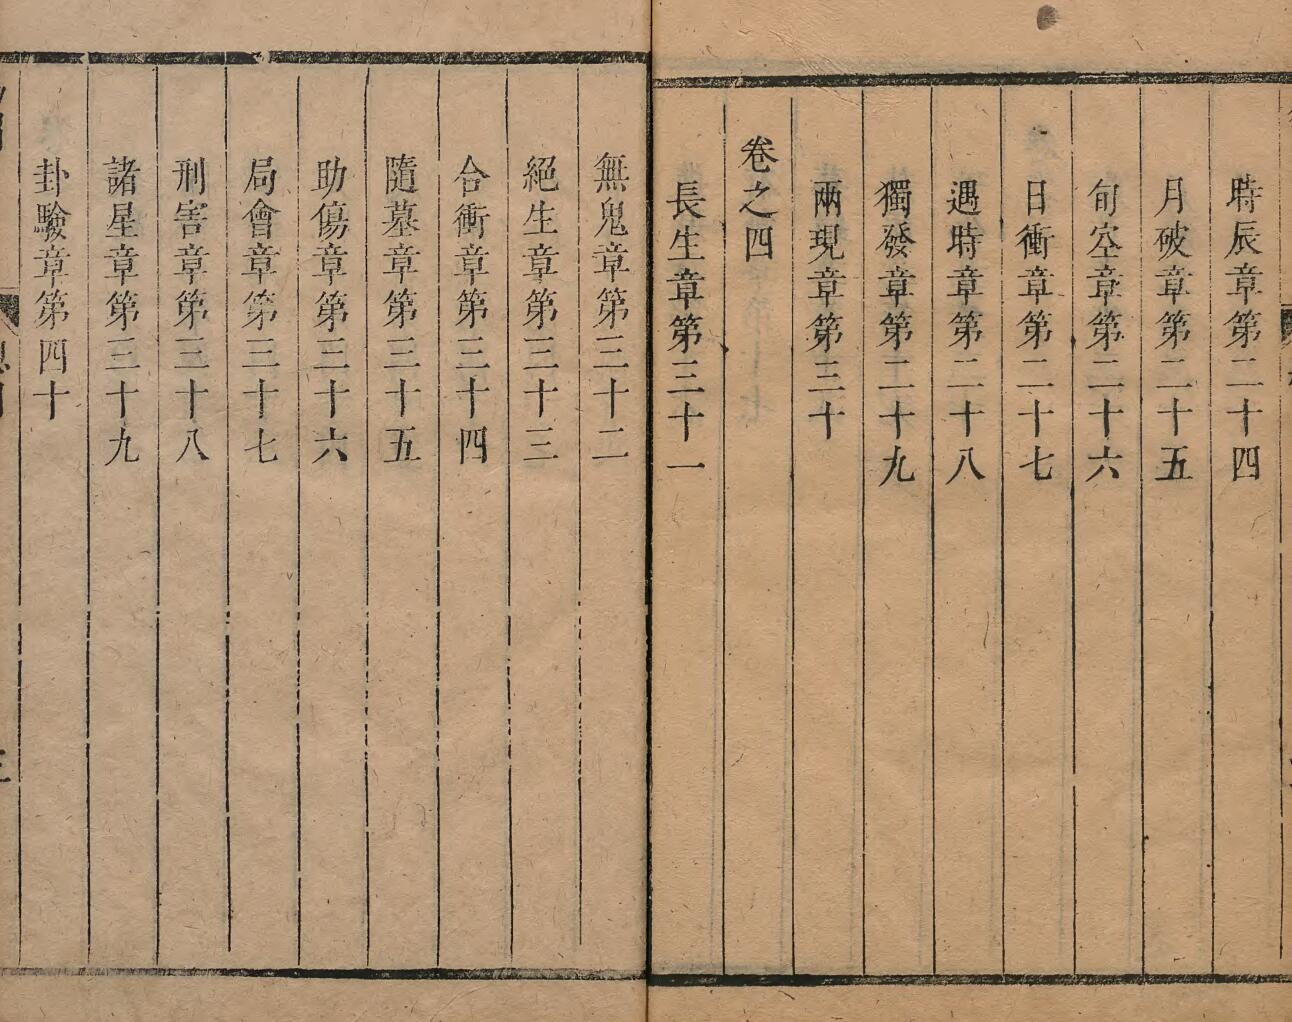 時辰章第二十四
月破章第二十五
旬空章第二十六
日衝章第二十七
遇時章第二十八
獨發章第二十九
兩現章第三十
卷之四
長生章第三十一
無鬼章第三十二
絕生章第三十三
合衝章第三十四
隨墓章第三十五
助傷章第三十六
局會章第三十七
刑害章第三十八
諸星章第三十九
卦驗章第四十